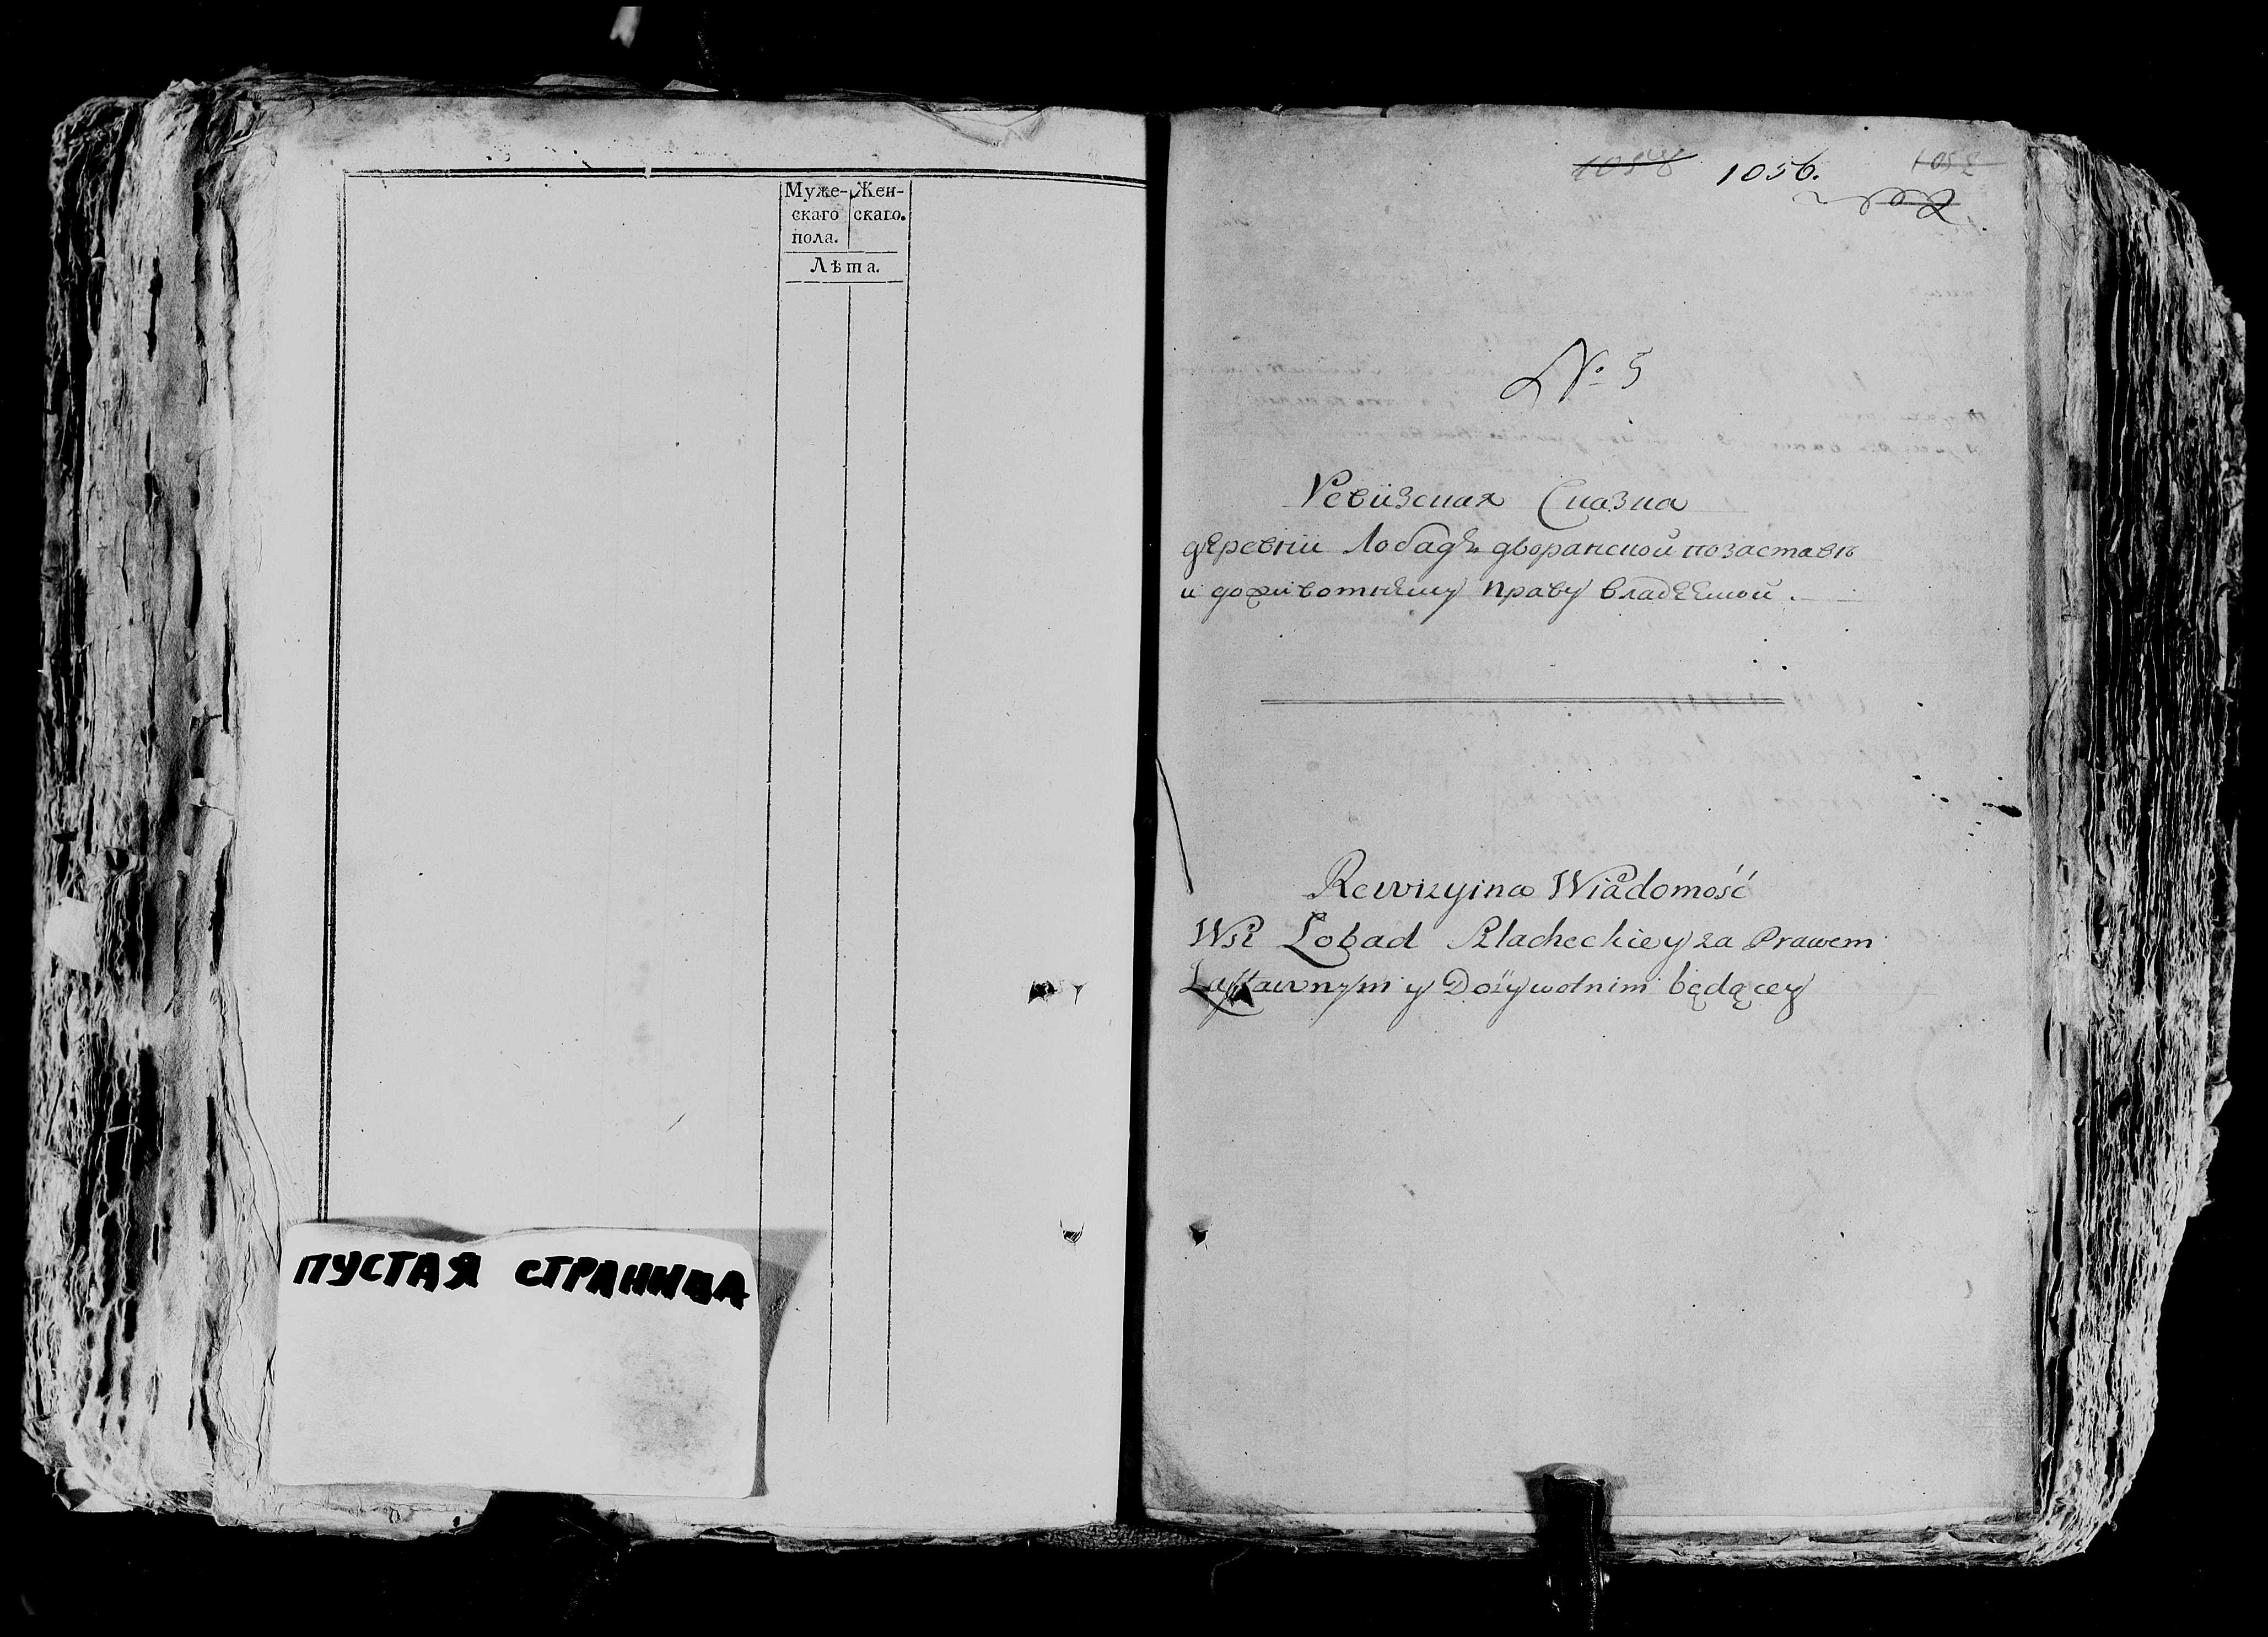 Муже- Жен-
скаго скаго.
пола.
Лѣта.
ПУСТАЯ СТРАНИЦА
1056.
№ 5
Ревизская Сказка
деревни Лобадъ дворанской позаставъ
и доживотнему праву владеемой.
Rewizyina Wiadomość
Wsi Łobad Szlacheckiey za Prawem
Zastawnym y Dożywotnim będącey